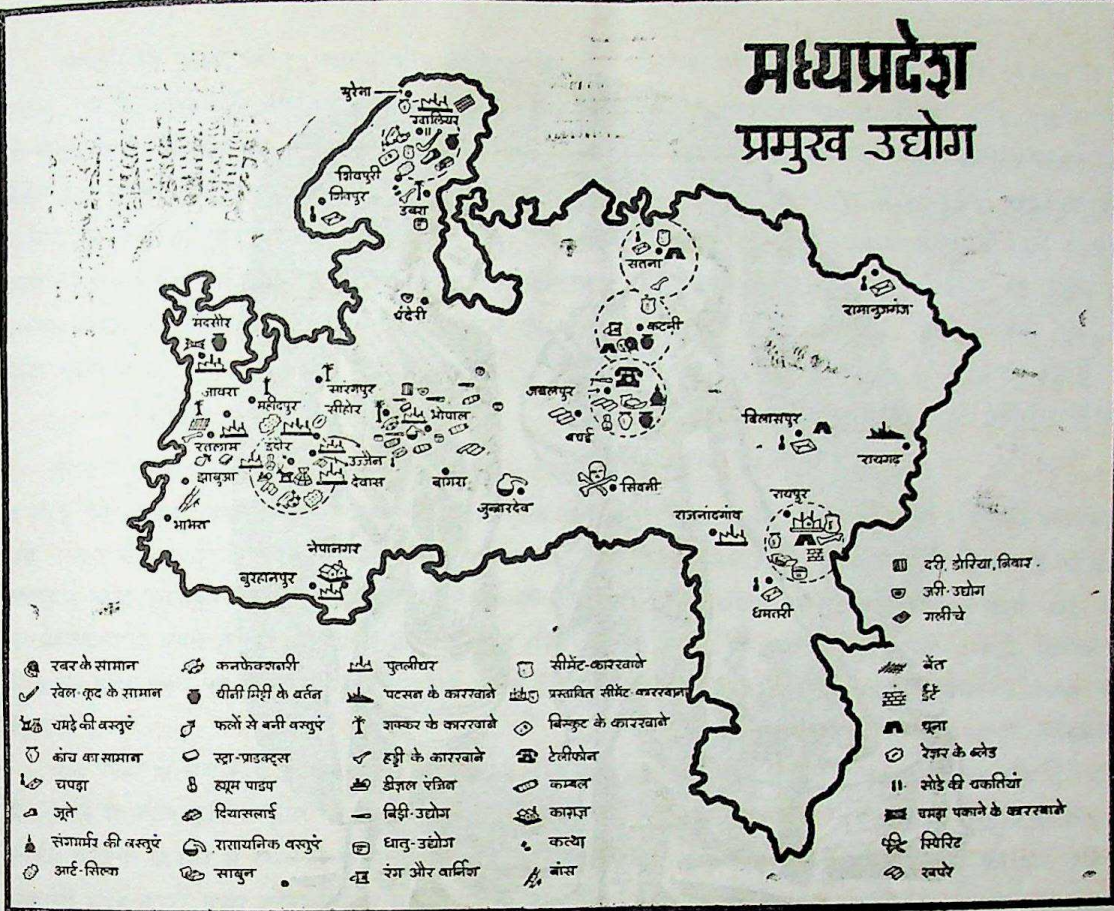 मध्यप्रदेश
प्रमुख उद्योग
मुरेना
ग्वालियर
शिवपुरी
शिवपुर
डबरा
चंदेरी
सतना
कटनी
रामानुजगंज
मंदसौर
जावरा
महीदपुर
सारंगपुर
सीहोर
भोपाल
जबलपुर
बिलासपुर
रायगढ़
रतलाम
इंदौर
उज्जैन
देवास
झाबुआ
बागरा
जुन्नारदेव
सिवनी
राजनांदगांव
रायपुर
नेपानगर
बुरहानपुर
धमतरी
दरी, डोरिया, निवार.
जरी-उद्योग
गलीचे
रबर के सामान
खेल-कूद के सामान
चमड़े की वस्तुएं
कांच का सामान
चपड़ा
जूते
संगमर्मर की वस्तुएं
आर्ट-सिल्क
कनफेक्शनरी
चीनी मिट्टी के बर्तन
फलों से बनी वस्तुएं
स्ट्रा-प्राडक्ट्स
ह्यूम पाइप
दियासलाई
रासायनिक वस्तुएं
साबुन
पुतलीघर
पटसन के कारखाने
शक्कर के कारखाने
हड्डी के कारखाने
डीज़ल एंजिन
बिड़ी-उद्योग
धातु-उद्योग
रंग और वार्निश
सीमेंट-कारखाने
प्रस्तावित सीमेंट-कारखाने
बिस्कुट के कारखाने
टेलीफोन
कम्बल
काग़ज़
कत्था
बांस
बेंत
ईंटें
चूना
रेज़र के ब्लेड
सोडे की चकतियां
चमड़ा पकाने के कारखाने
स्पिरिट
खपरे